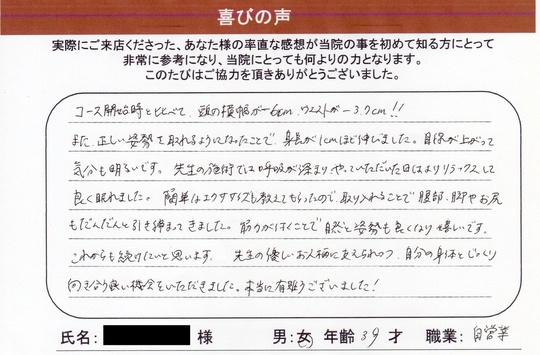 喜びの声
実際にご来店くださった、あなた様の率直な感想が当院の事を初めて知る方にとって
非常に参考になり、当院にとっても何よりの力となります。
このたびはご協力を頂きありがとうございました。
コース開始時と比べて、頭の横幅が-6cm、ウエストが-3.7cm!!
また、正しい姿勢を取れるようになったことで、身長が1cmほど伸びました。目線が上がって
気分も明るいです。先生の施術では呼吸が深まり、やっていただいた日はよりリラックスして
良く眠れました。簡単なエクササイズも教えてもらったので取り入れることで腹部、脚やお尻
もだんだんと引き締まってきました。筋力がつくことで自然と姿勢も良くなり嬉しいです。
これからも続けたいと思います。先生の優しいお人柄に支えられつつ、自分の身体とじっくり
向き合う良い機会をいただきました。本当に有難うございました!
氏名: 様 男:女 年齢 39 才 職業: 自営業